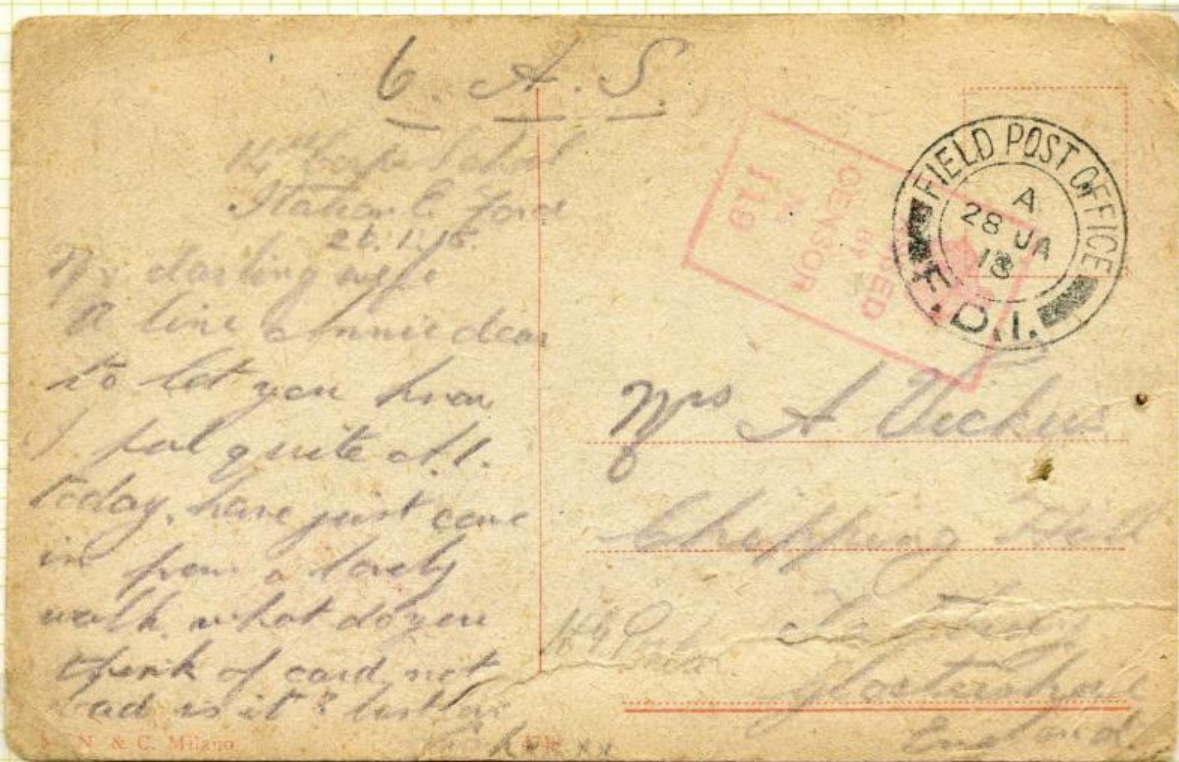 O. A. S.
14th Corps School
Italian E. Force
26.1.18.
My darling wife
A line Annie dear
to let you know
I feel quite A.1.
today, have just come
in from a lovely
walk, what do you
think of card, not
bad is it? best
xx
N. & C. Milano
PASSED
BY
CENSOR
No
119
FIELD POST OFFICE
A
28 JA
18
F.D.1.
Mrs A Vickers
Chipping Hill
Tetbury
Glostershire
England